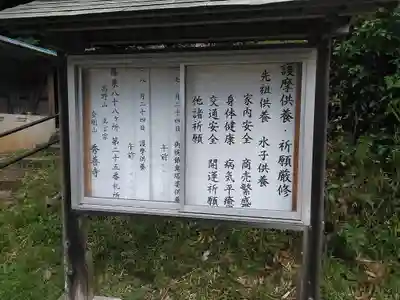 護摩供養・祈願厳修
先祖供養 水子供養
家内安全 商売繁盛
身体健康 病気平癒
交通安全 開運祈願
他諸祈願
七月二十四日
午前
八月二十四日 護摩供養
午前
関東八十八ヶ所 第二十五番札所
高野山 真言宗
金剛山 秀善寺